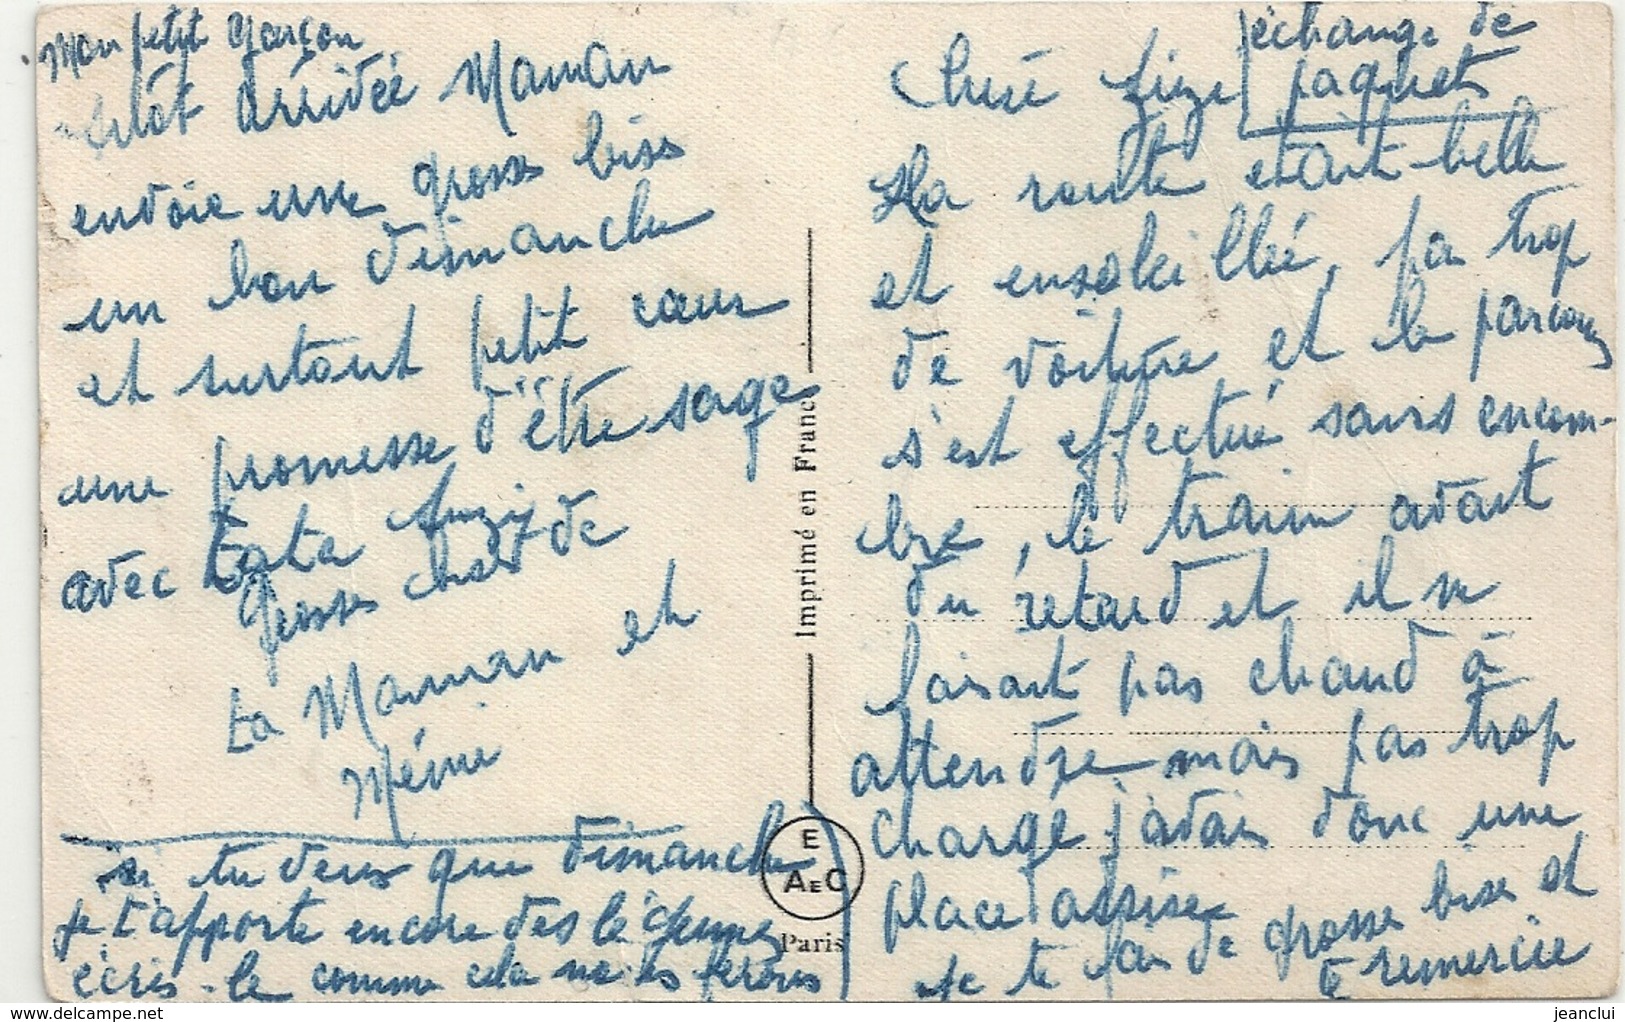 Mon petit garçon
arrivée Maman
envoie une grosse bise
un bon dimanche
et surtout petit cœur
une promesse d'être sage
avec tata
Grosses de
ta Maman et
Mémé
si tu veux que dimanche
je t'apporte encore des légumes
écris-le comme cela nous les ferons
Imprimé en France
E
AEC
Paris
échange de
paquets
La route était belle
et ensoleillée, pas trop
de voiture et le parcours
s'est effectué sans encom-
bre, le train avait
du retard et il ne
faisait pas chaud à
attendre mais pas trop
chargé j'avais donc une
place assise
je te fais de grosse bises et
te remercie
jeanclui
delcampe.net